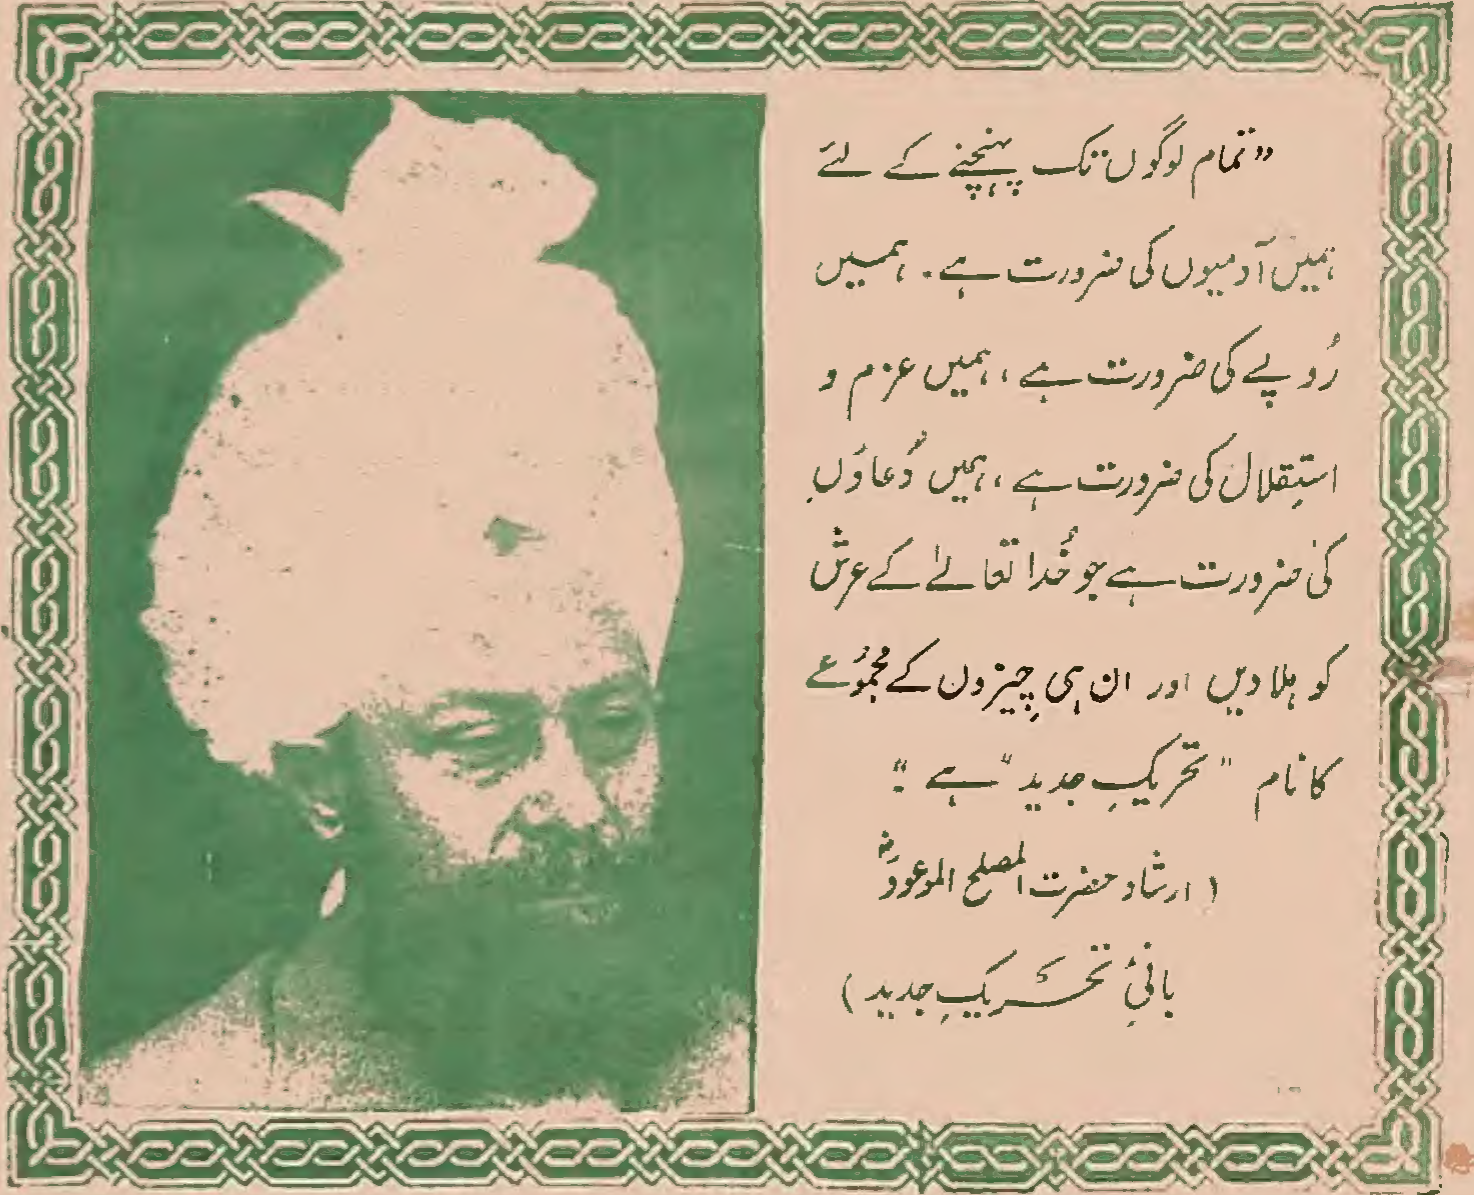 "تمام لوگوں تک پہنچنے کے لئے
ہمیں آدمیوں کی ضرورت ہے۔ ہمیں
رُوپے کی ضرورت ہے، ہمیں عزم و
استقلال کی ضرورت ہے، ہمیں دُعاؤں
کی ضرورت ہے جو خُدا تعالےٰ کے عرش
کو ہلا دیں اور ان ہی چیزوں کے مجموُعے
کا نام "تحریکِ جدید" ہے"
(ارشاد حضرت المصلح الموعودؓ
بانیٔ تحریکِ جدید)